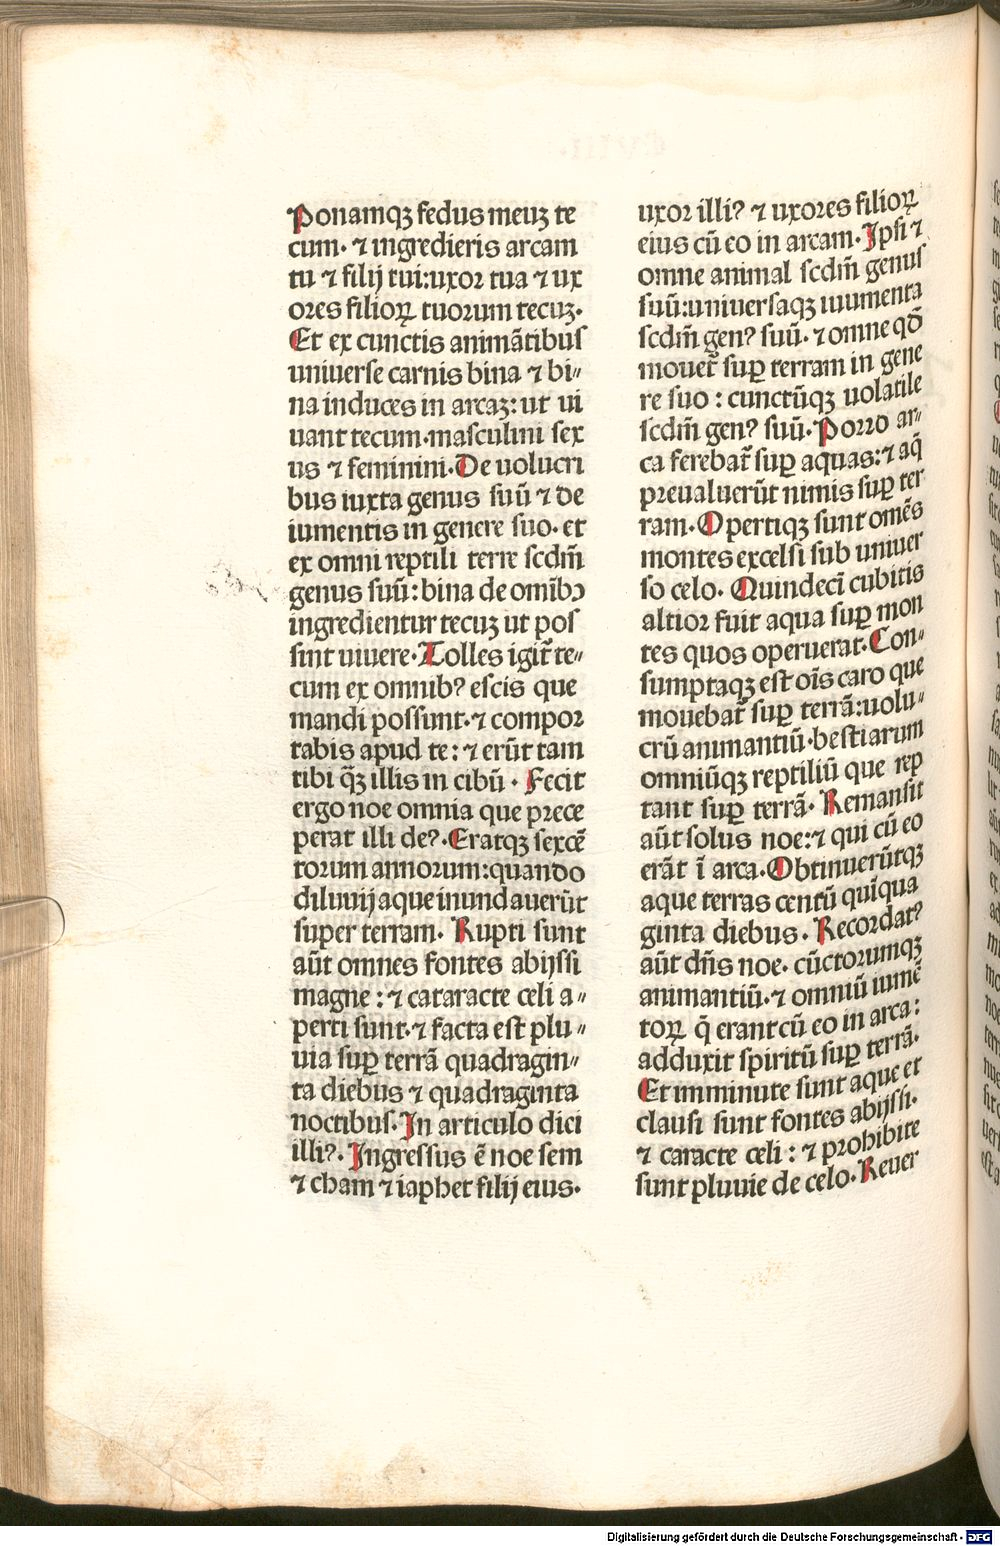 Ponamqꝫ fedus meuꝫ te
cum· ⁊ ingredieris arcam
tu ⁊ filij tui:uxor tua ⁊ ux
ores filioꝝ tuorum tecuꝫ·
Et ex cunctis animãtibus
uniuerse carnis bina ⁊ bi⸗
na induces in arcaꝫ: ut ui
uant tecum·masculini sex
us ⁊ feminini·De uolucri
bus iuxta genus suũ ⁊ de
iumentis in genere suo· et
ex omni reptili terre scdm̃
genus suũ: bina de omĩbꝫ
ingredientur tecuꝫ ut pos
sint uiuere·Tolles igit̃ te⸗
cum ex omnibꝰ escis que
mandi possunt·⁊ compor
tabis apud te: ⁊ erũt tam
tibi q̃ꝫ illis in cibũ · Fecit
ergo noe omnia que prece
perat illi deꝰ·Eratqꝫ sexcẽ
torum annorum:quando
diluuij aque inundauerũt
super terram· Rupti sunt
aũt omnes fontes abijssi
magne : ⁊ cataracte celi a⸗
perti sunt·⁊ facta est plu⸗
uia suꝑ terrã quadragin⸗
ta diebus ⁊ quadraginta
noctibus·In articulo dici
illiꝰ· Ingressus ẽ noe sem
⁊ cham ⁊ iaphet filij eius·
uxor illiꝰ ⁊ uxores filioꝝ
eius cũ eo in arcam·Ipsi ⁊
omne animal scdm̃ genus
suũ:uniuersaqꝫ iuumenta
scdm̃ genꝰ suũ· ⁊ omne qď
mouet̃ suꝑ terram in gene
re suo : cunctũqꝫ uolatile
scdm̃ genꝰ suũ·Porro ar⸗
ca ferebat̃ suꝑ aquas:⁊ aq̃
preualuerũt nimis suꝑ ter
ram·Opertiqꝫ sunt omẽs
montes excelsi sub uniuer
so celo· Quindecĩ cubitis
altior fuit aqua suꝑ mon
tes quos operuerat·Con⸗
sumptaqꝫ est oĩs caro que
mouebat̃ suꝑ terrã:uolu⸗
crũ animantiũ·bestiarum
omniũqꝫ reptiliũ que rep
tant suꝑ terrã· Remansit
aũt solus noe:⁊ qui cũ eo
erãt ĩ arca·Obtinuerũtqꝫ
aque terras centũ quĩqua
ginta diebus· Recordatꝰ
aũt dñs noe· cũctorumqꝫ
animantiũ·⁊ omniũ iumẽ
toꝝ q̃ erant cũ eo in arca:
adduxit spiritũ suꝑ terrã·
Et imminute sunt aque et
clausi sunt fontes abijssi·
⁊ caracte celi : ⁊ prohibite
sunt pluuie de celo· Reuer
Digitalisierung gefördert durch die Deutsche Forschungsgemeinschaft - DFG